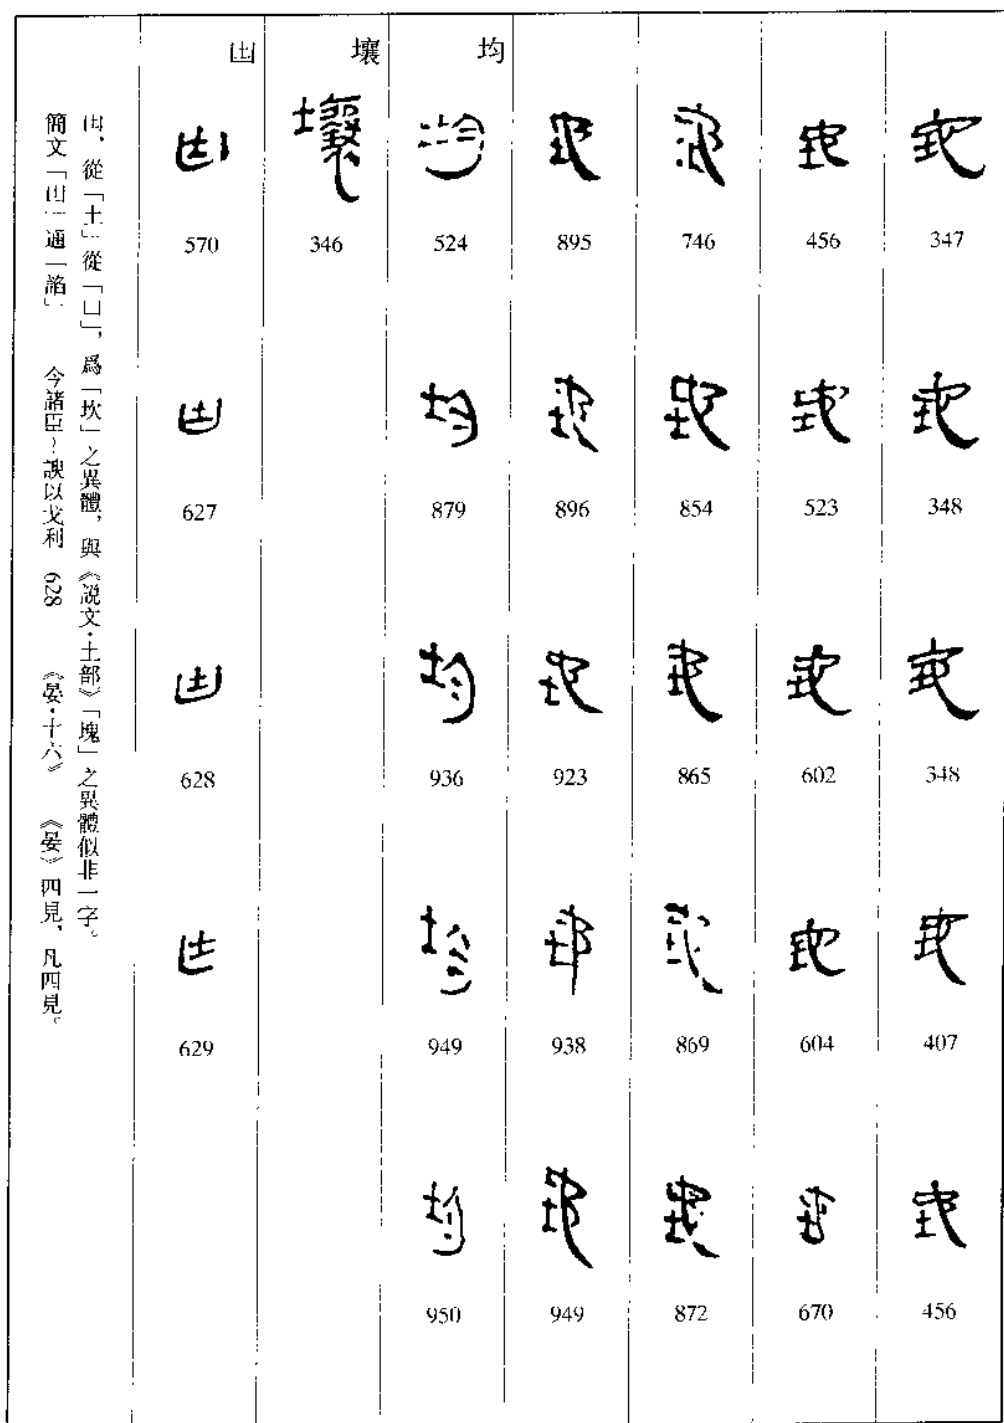 347
348
348
407
456
456
523
602
604
670
746
854
865
869
872
895
896
923
938
949
均
524
879
936
949
950
壤
346
凷
570
627
628
629
凷，從「土」從「凵」，爲「坎」之異體，與《説文·土部》「塊」之異體似非一字。
簡文「凷」通「諂」 今諸臣～諛以戈利 628 《晏·十六》 《晏》四見，凡四見。